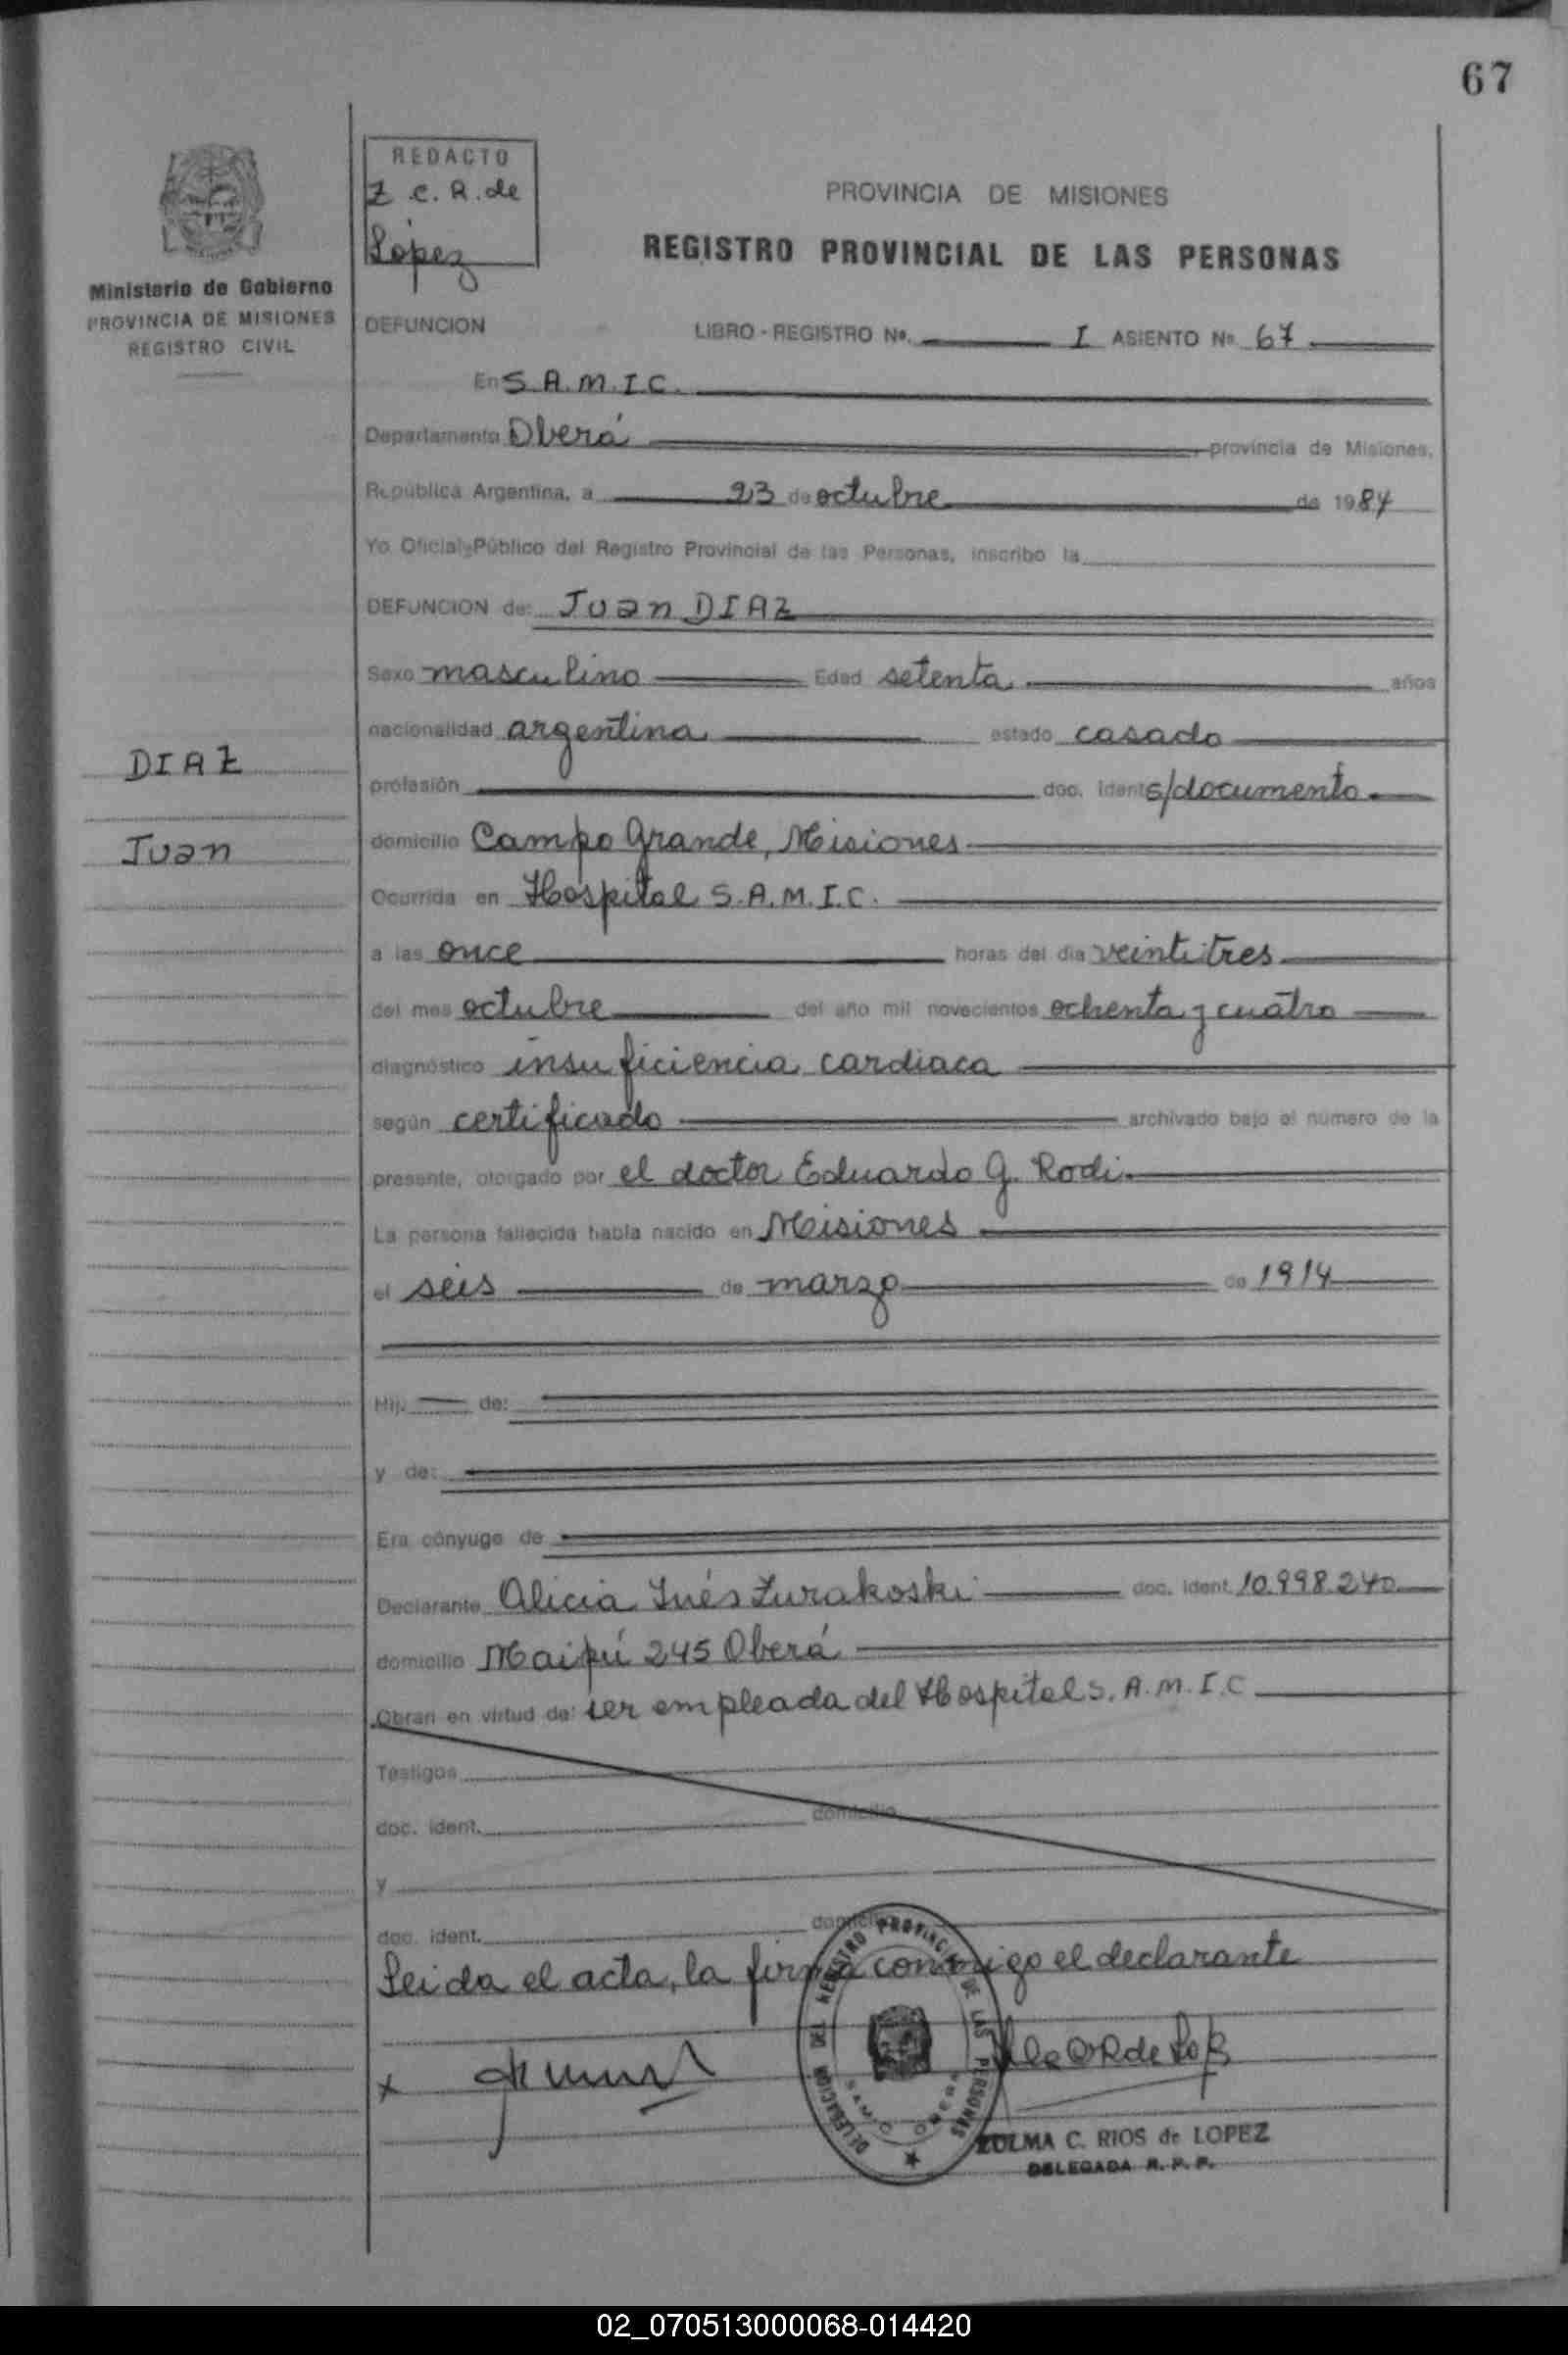 67
REDACTO
Z. C. R. de
López
PROVINCIA DE MISIONES
REGISTRO PROVINCIAL DE LAS PERSONAS
Ministerio de Gobierno
PROVINCIA DE MISIONES
REGISTRO CIVIL
DEFUNCION
LIBRO - REGISTRO Nº. I ASIENTO Nº 67
En S.A.M.I.C.
Departamento Oberá, provincia de Misiones,
República Argentina, a 23 de octubre de 1984
Yo Oficial Público del Registro Provincial de las Personas, inscribo la
DEFUNCION de: Juan DIAZ
Sexo masculino Edad setenta años
nacionalidad argentina estado casado
DIAZ
profesión doc. ident. s/documento
Juan
domicilio Campo Grande, Misiones
Ocurrida en Hospital S.A.M.I.C.
a las once horas del día veintitres
del mes octubre del año mil novecientos ochenta y cuatro
diagnóstico insuficiencia cardiaca
según certificado archivado bajo el número de la
presente, otorgado por el doctor Eduardo G. Rodi
La persona fallecida había nacido en Misiones
el seis de marzo de 1914
Hij. de:
y de:
Era cónyuge de
Declarante Alicia Inés Zurakoski doc. ident. 10.998.240
domicilio Maipú 245 Oberá
Obran en virtud de: ser empleada del Hospital S.A.M.I.C
Testigos
doc. ident. domicilio
y
doc. ident. domicilio
Leida el acta, la firma conmigo el declarante
x
DELEGACION DEL REGISTRO PROVINCIAL DE LAS PERSONAS
ZULMA C. RIOS de LOPEZ
DELEGADA R. P. P.
02_070513000068-014420